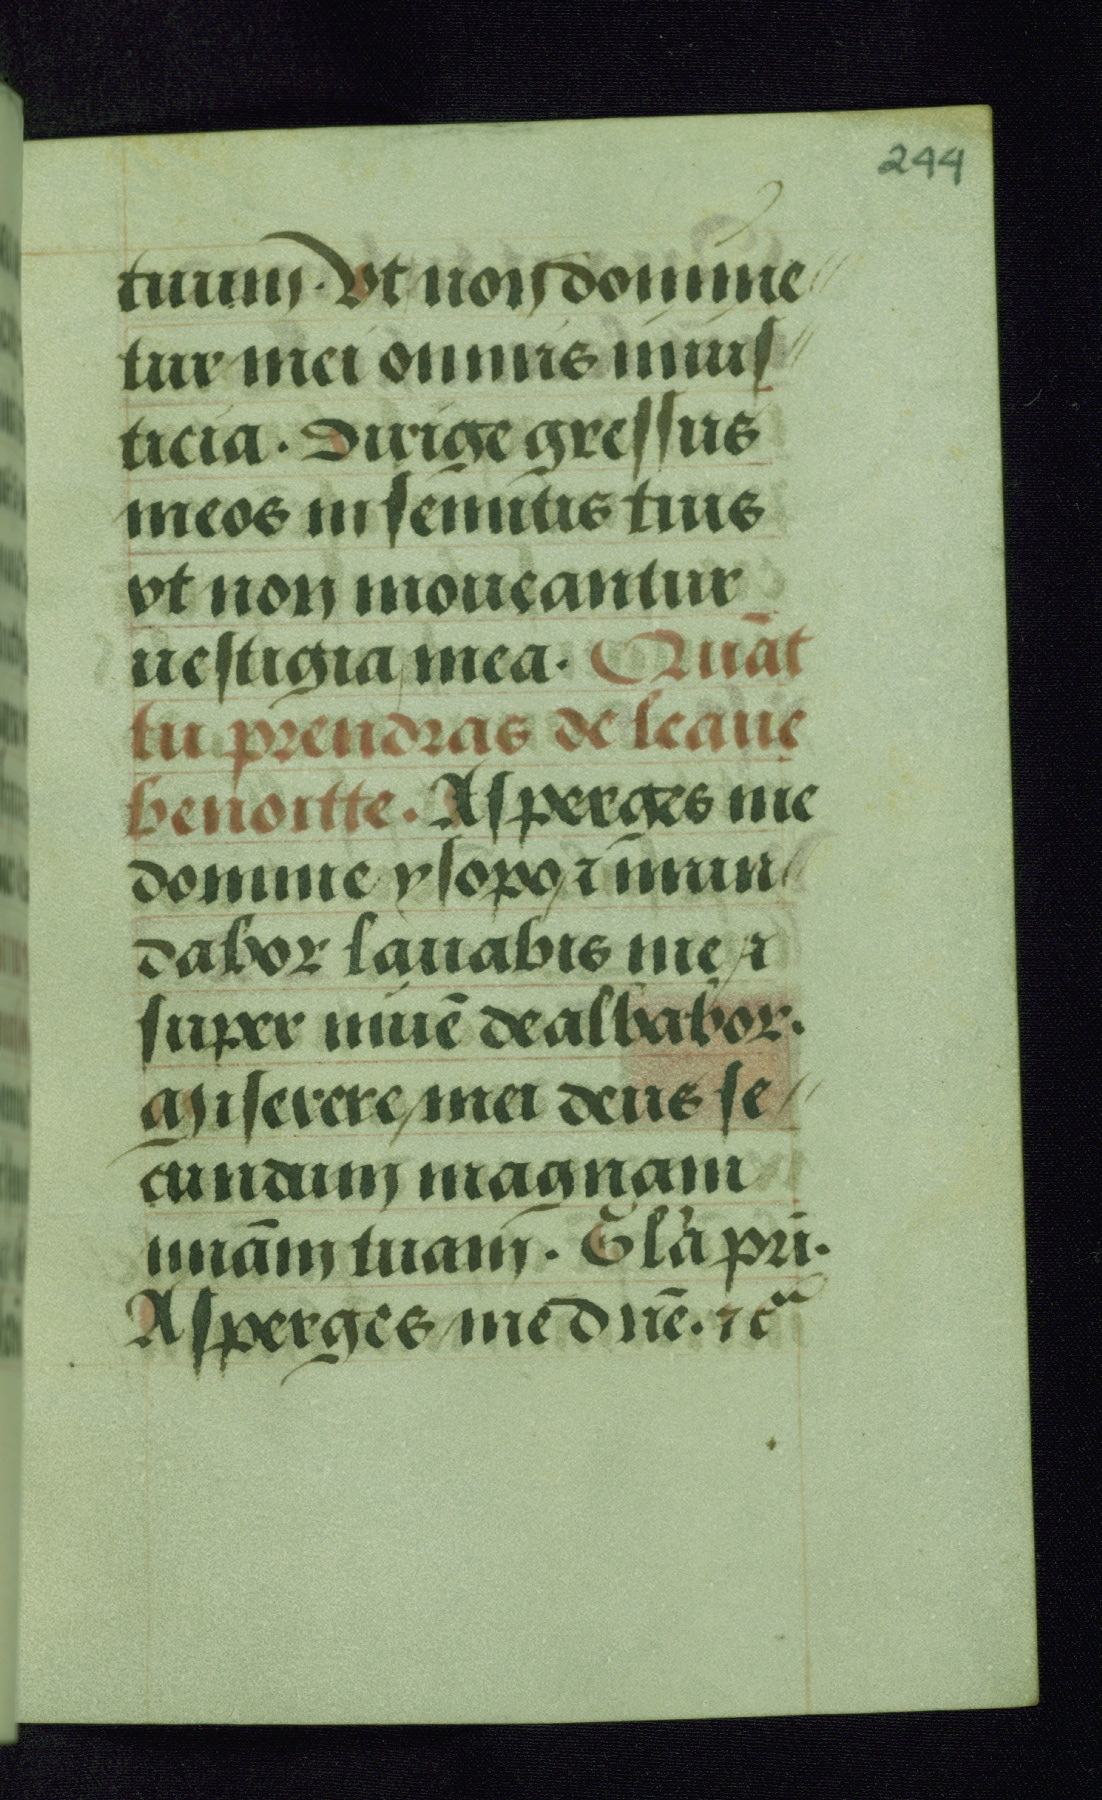 244
tuum. Vt non domine
tur mei omnis inius
ticia. Dirige gressus
meos in semitis tuis
vt non moueantur
uestigia mea. Quāt
tu prendras de leaue
benoitte. Asperges me
domine ysopo ⁊ mun
dabor lauabis me ⁊
super niuē dealbabor.
Miserere mei deus se
cundum magnam
miām tuam. Glā pri.
Asperges me dnē. ⁊c̄